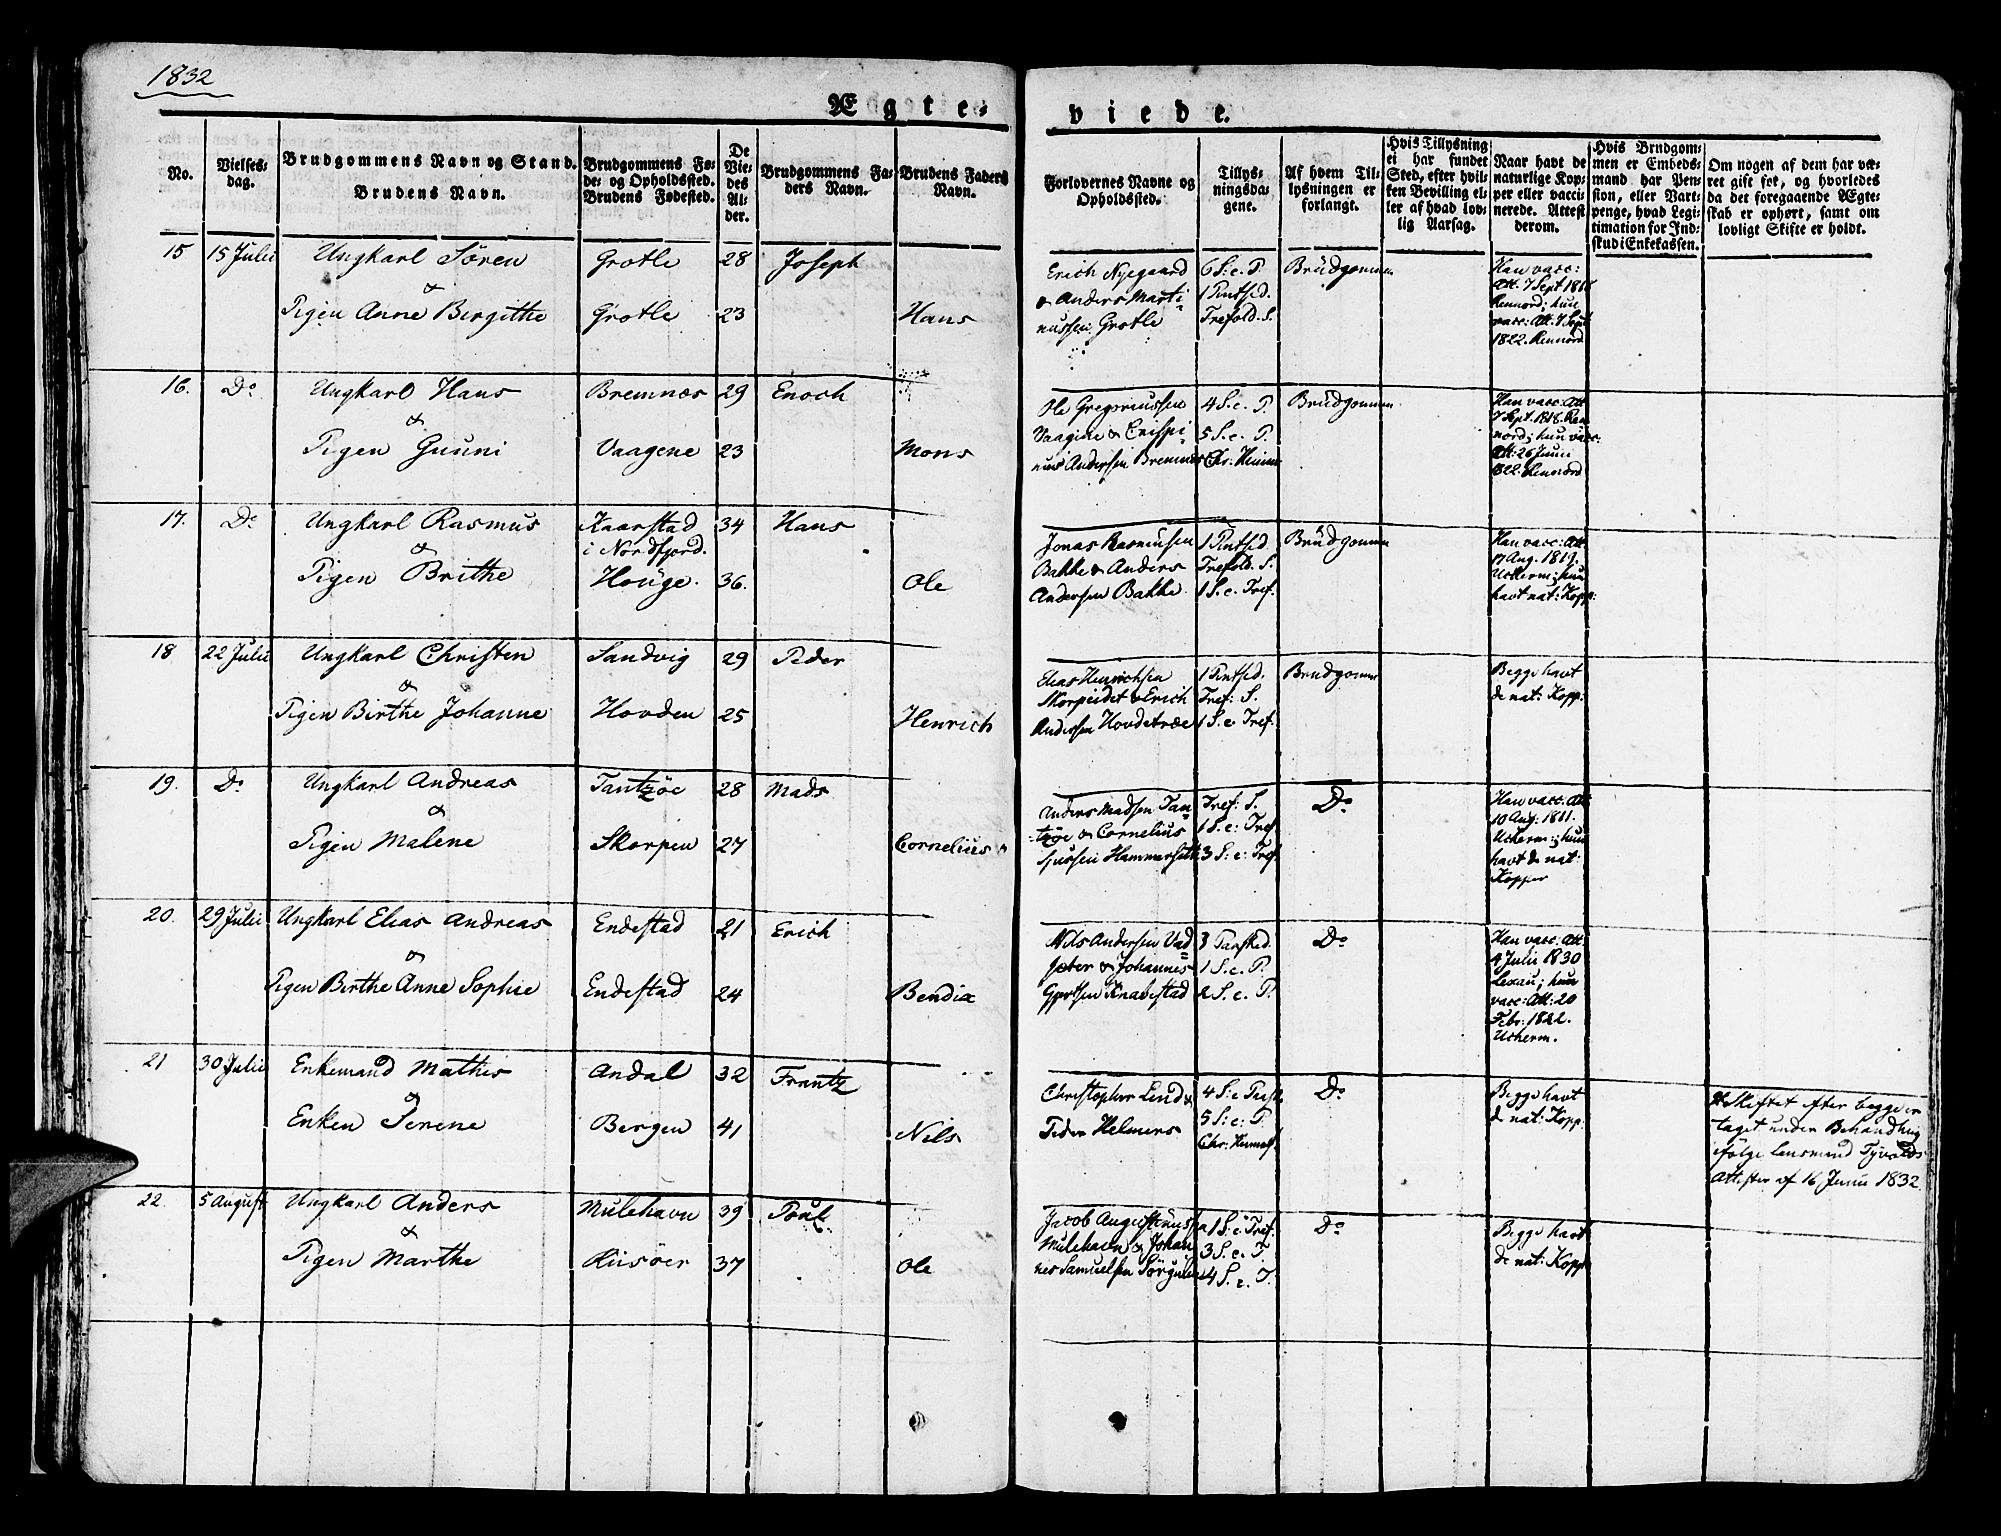 1832
Ægte-
viede.
No.
Vielses-
dag.
Brudgommens Navn og Stand.
Brudens Navn.
Brudgommens Fø-
de- og Opholdssted.
Brudens Fødested.
De
Vie-
des
Al-
der.
Brudgommens Fa-
ders Navn.
Brudens Faders
Navn.
Forlovernes Navne og
Opholdssted.
Tillys-
ningsda-
gene.
Af hvem Til-
lysningen er
forlangt.
Hvis Tillysning
ei har fundet
Sted, efter hvil-
ken Bevilling el-
ler af hvad lov-
lig Aarsag.
Naar havt de
naturlige Kop-
per eller vacci-
nerede. Attest
derom.
Hvis Brudgom-
men er Embeds-
mand har Pen-
sion, eller Vart-
penge, hvad Legi-
timation for Ind-
skud i Enkekassen.
Om nogen af dem har væ-
ret gift før, og hvorledes
da det foregaaende Ægte-
skab er ophørt, samt om
lovligt Skifte er holdt.
15 15 Julii Ungkarl Sören Grotle 28 Joseph
&
Pigen Anne Birgithe Grotle 23 Hans
Erich Nyegaard
& Anders Marti-
nussen Grotle
6 S. e. P.
1 Pintsed.
Trefold. S.
Brüdgommen
Han vacc:
Att. 7 Sept 1818
Rennord; hun
vacc: Att. 7 Sept
1822. Rennord
16. Do Ungkarl Hans Bremnæs 29 Enoch
&
Pigen Guuni Vaagene 23 Mons
Ole Gregoriussen
Vaagene & Crispi-
nus Andersen Bremnæs
4 S. e. P.
5 S. e. P.
Chr: Himm
Brüdgommen
Han vacc: Att
7 Sept. 1818. Ren
nord; hun vacc:
Att: 26 Junii
1822. Rennord
17. Do Ungkarl Rasmus Kaarstad 34 Hans
i Nordfjord.
&
Pigen Brithe Houge. 36. Ole
Jonas Rasmusen
Bakke & Anders
Andersen Bakke
1 Pintsed.
Trefold. S.
1 S. e. Tref.
Brüdgommen
Han vacc: Att.
17 Aug. 1819.
Ucherm; hun
havt nat: Kopp:
18 22 Julii Ungkarl Christen Sandvig 29 Peder
&
Pigen Birthe Johanne Hovden 25 Henrich
Elias Henrichsen
Skorpeidet & Erich
Andersen Hovdetræe
1 Pintsed.
Tref: S.
1 S. e Tref.
Brudgommen
Begge havt
de nat: Kopp:
19. Do Ungkarl Andreas Tantzöe 28 Mads
&
Pigen Malene Skorpen 27 Cornelius
Anders Madsen Tan-
tzöe & Cornelius
Hammerseth
Tref: S.
1 S. e: Tref
3 S: e: Tref.
Do
Han vacc: Att
10 Aug: 1811.
Ucherm: hun
havt de nat:
Kopper
20. 29 Julii Ungkarl Elias Andreas Endestad 21 Erich
&
Pigen Birthe Anne Sophie Endestad 24 Bendix
Nils Andersen Vad-
sæter & Johannes
Gjertsen Knapestad
3 Paaskd.
1 S. e. P.
2 S. e. P.
Do
Han vacc: Att.
4 Julii 1830
Lexau; hun
vacc: Att: 20
Febr: 1822.
Ucherm.
21 30 Julii Enkemand Mathis Andal 32 Frantz
&
Enken Serene Bergen 41 Nils
Christopher Lend &
Peder Helmers
4 S: e Paask
5 S: e: P.
Chr: Himmelf.
Do
Begge havt
de nat: Kopp:
Skiftet efter begge er
taget under Behandling
ifölge Lensmand Tyvolds
Attester af 16 Junii 1832
22. 5 August Ungkarl Anders Mulehavn 39 Poul
&
Pigen Marthe Huusöer 37 Ole
Jacob Augustinuss
Mulehavn & Johan
nes Samuelsen Sörgulen
1 S. e. Tref.
3 S. e. T
4 S. e. T.
Do
Begge havt
de nat: Kopp: